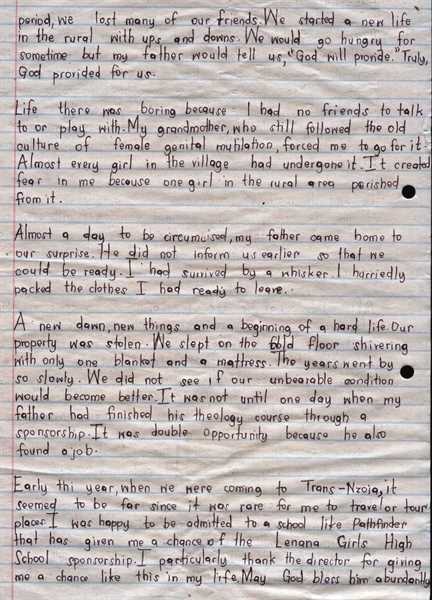 period, we lost many of our friends. We started a new life
in the rural with ups and downs. We would go hungry for
sometime but my father would tell us, "God will provide." Truly,
God provided for us.
Life there was boring because I had no friends to talk
to or play with. My grandmother, who still followed the old
culture of female genital mutilation, forced me to go for it.
Almost every girl in the village had undergone it. It created
fear in me because one girl in the rural area perished
from it.
Almost a day to be circumcised, my father came home to
our surprise. He did not inform us earlier so that we
could be ready. I had survived by a whisker. I hurriedly
packed the clothes I had ready to leave.
A new dawn, new things and a beginning of a hard life. Our
property was stolen. We slept on the cold floor shivering
with only one blanket and a mattress. The years went by
so slowly. We did not see if our unbearable condition
would become better. It was not until one day when my
father had finished his theology course through a
sponsorship. It was double opportunity because he also
found a job.
Early thi year, when we were coming to Trans-Nzoia, it
seemed to be far since it was rare for me to travel or tour
places. I was happy to be admitted to a school like Pathfinder
that has given me a chance of the Lenana Girls High
School sponsorship. I particularly thank the director for giving
me a chance like this in my life. May God bless him abundantly